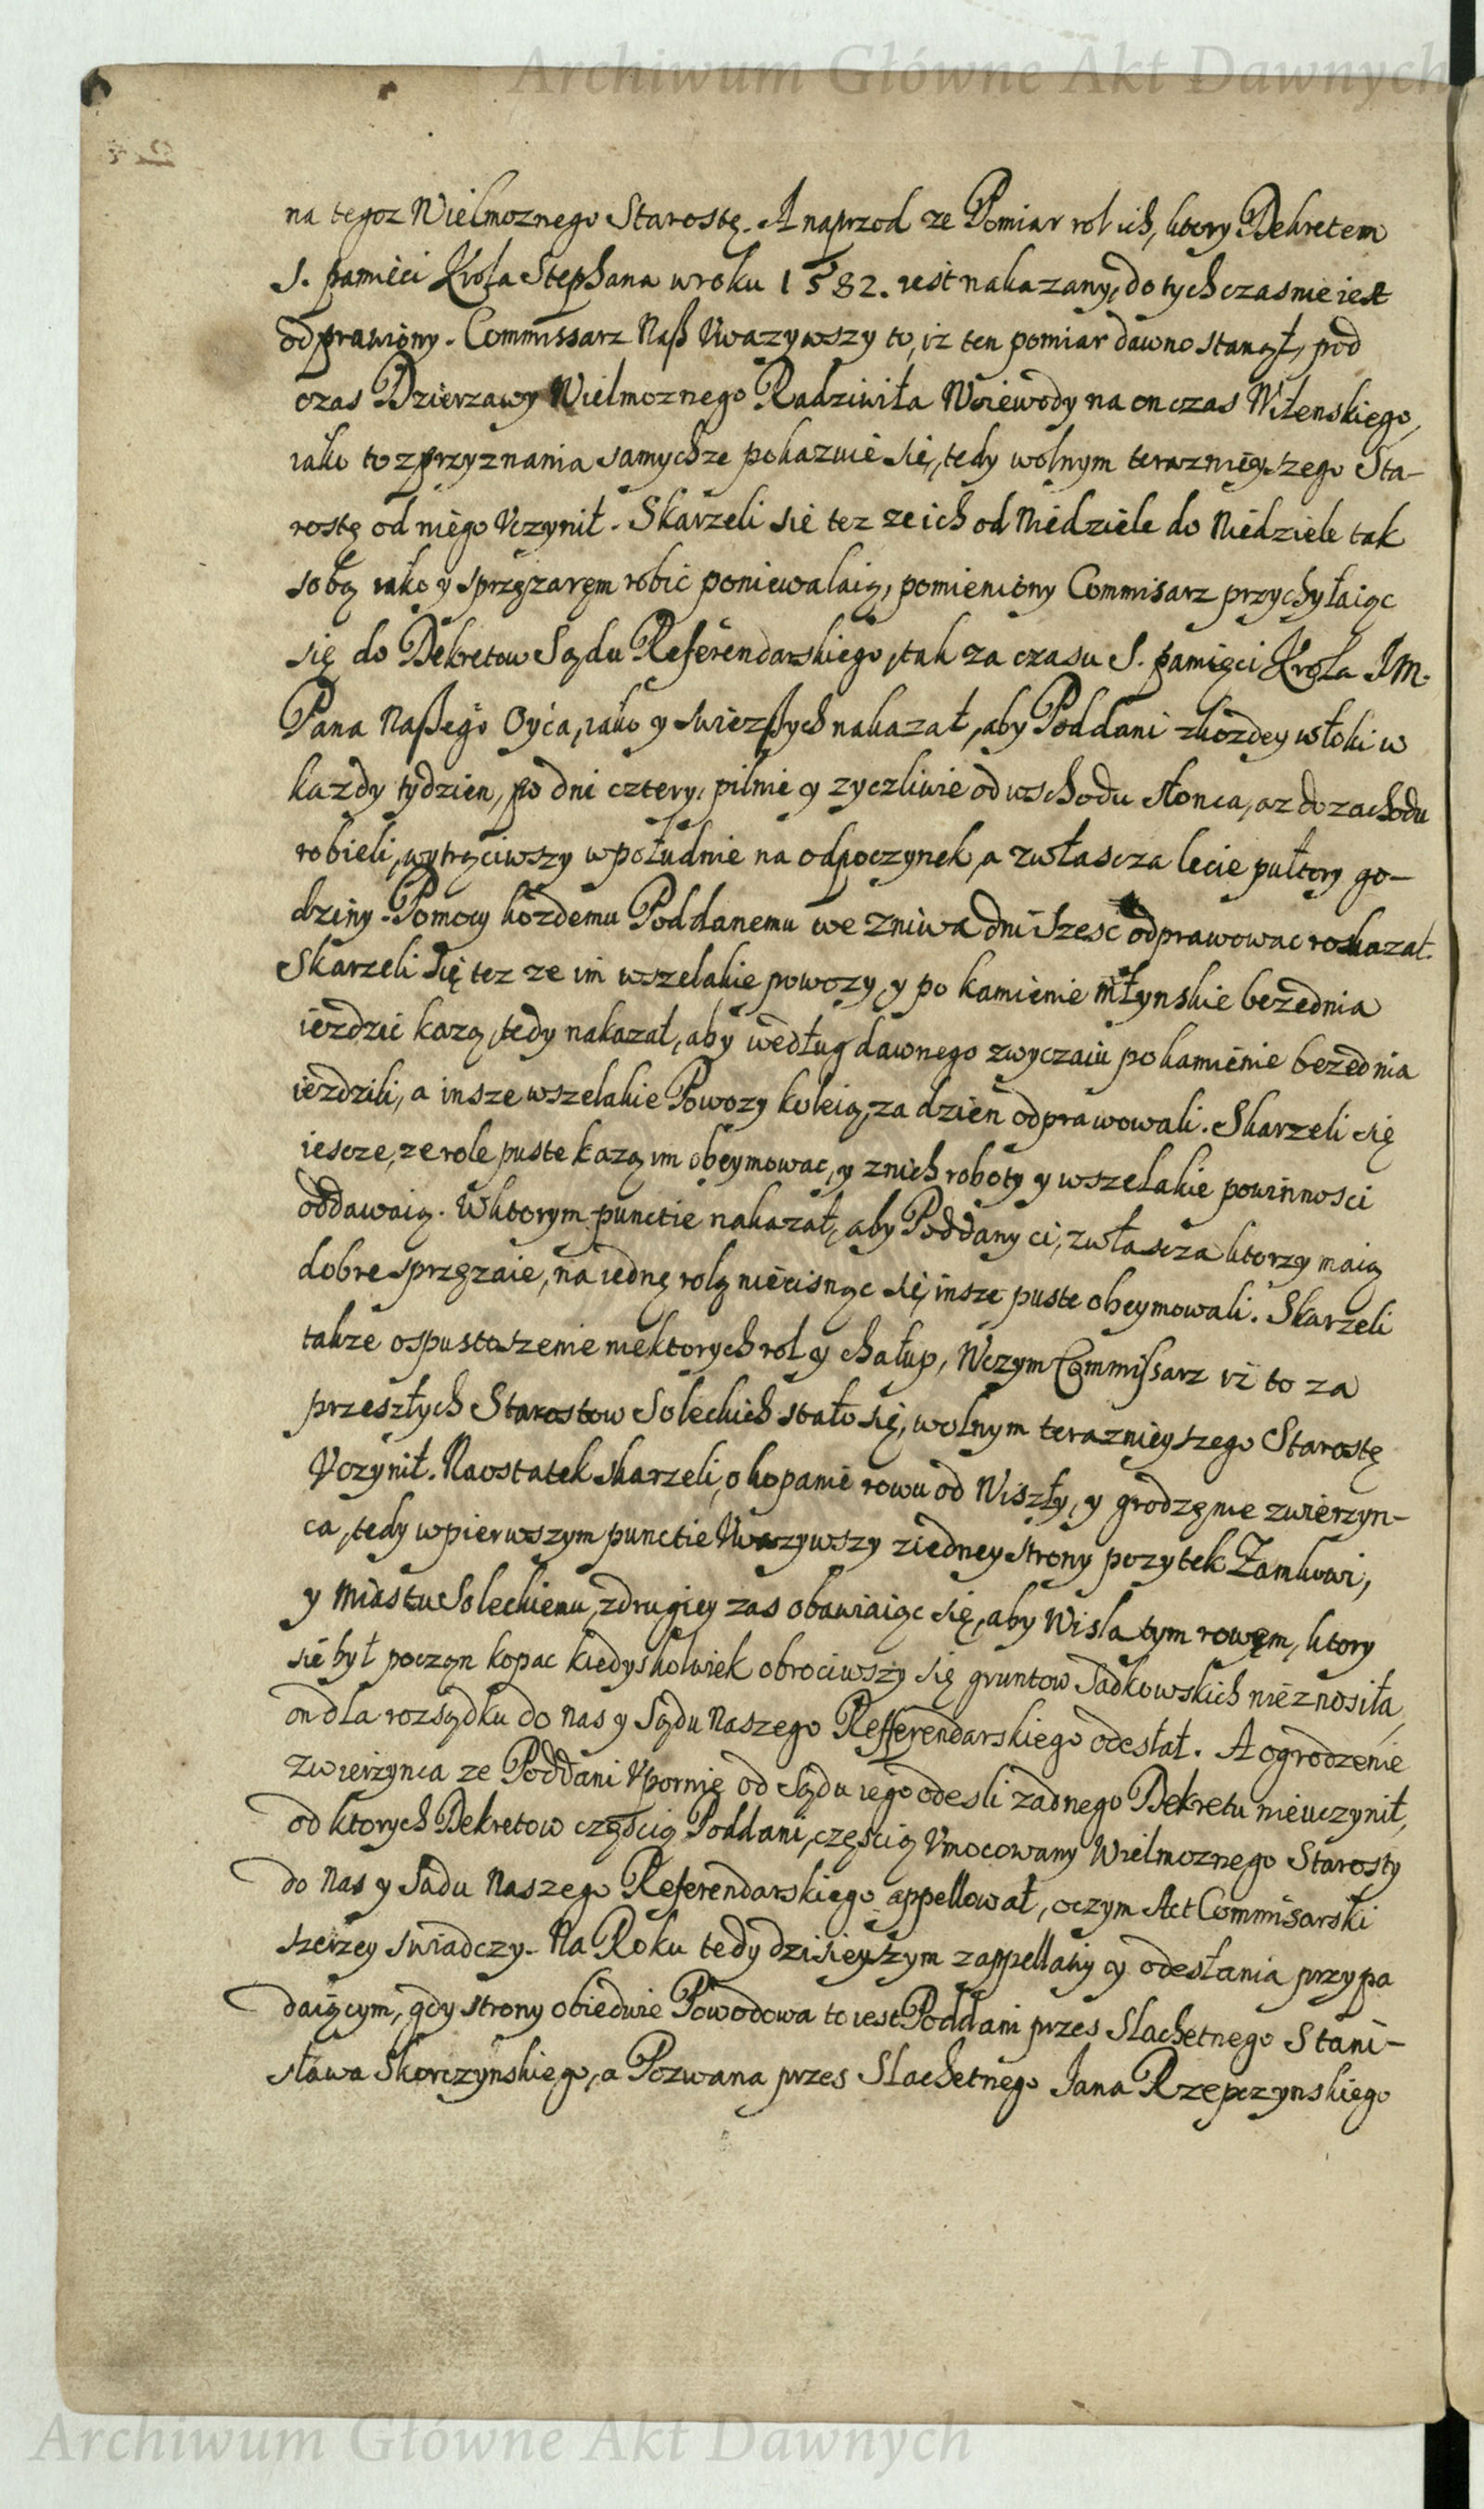 Archiwum Główne Akt Dawnych
na tegoz Wielmoznego Starostę. A naprzod ze Pomiar rol ich, ktory Dekretem
S. pamieci Krola Stephana w roku 1582. iest nakazany, do tych czas nie iest
odprawiony. Commissarz Naß Uwazywszy to, iz ten pomiar dawno stanął, pod
czas Dzierzawy Wielmoznego Radziwiła Woiewody na on czas Wilenskiego,
iako to z przyznania samychze pokazuie się, tedy wolnym teraznieyszego Sta-
rostę od niego Uczynił. Skarzeli się tez ze ich od Niedziele do Niedziele tak
sobą iako y sprzęzaięm robic poniewalaią, pomieniony Commisarz przychylaiąc
się do Dekretow Sądu Referendarskiego, tak za czasu S. pamięci Krola IM.
Pana Naßego Oyca, iako y swiezßych nakazał, aby Poddani z kozdey włoki w
kazdy tydzien, po dni cztery, pilnie y zyczliwie od wschodu słonca, az do zachodu
robieli, wytrąciwszy w południe na odpoczynek, a zwłascza lecie pułtory go-
dziny. Pomocy kozdemu Poddanemu we zniwa dni szesc odprawowac roskazał.
Skarzeli się tez ze im wszelakie powozy, y po kamienie młynskie bezednia
iezdzic kazą, tedy nakazał, aby według dawnego zwyczaiu po kamienie bezednia
iezdzili, a insze wszelakie Powozy koleią, za dzien odprawowali. Skarzeli się
iescze, ze role puste kazą im obeymowac, y z nich roboty y wszelakie powinnosci
oddawaią. W ktorym punctie nakazał, aby Poddany ci, zwłascza ktorzy maią
dobre sprzęzaie, na iednę rolą niecisnąc się, insze puste obeymowali. Skarzeli
takze o spustoszenie niektorych rol y chałup, W czym Commissarz iz to za
przeszłych Starostow Soleckich stało się, wolnym teraznieyszego Starostę
Uczynił. Na ostatek skarzeli, o kopanie rowu od Wiszły, y grodzęnie zwierzyn-
ca, tedy w pierwszym punctie Uwazywszy z iedney strony pozytek Zamkowi,
y Miastu Soleckiemu, z drugiey zas obawiaiąc się, aby Wisla tym rowęm, ktory
się był począn kopac kiedyskolwiek obrociwszy się gruntow Sadkowskich nieznosiła,
on dla rozsądku do nas y Sądu Naszego Refferendarskiego odesłał. A o grodzenie
zwierzynca ze Poddani Upornie od Sądu iego odesli zadnego Dekretu nieuczynił,
od ktorych Dekretow częscią Poddani, częscią Umocowany Wielmoznego Starosty
do Nas y Sadu Naszego Referendarskiego appellował, o czym Act Commisarski
szerzey swiadczy. Na Roku tedy dzisieyszym z appellatiy y odesłania przypa
daiącym, gdy strony obiedwie Powodowa to iest Poddani przes Slachetnego Stani-
sława Skorczynskiego, a Pozwana przes Slachetnego Jana Rzepczynskiego
Archiwum Główne Akt Dawnych